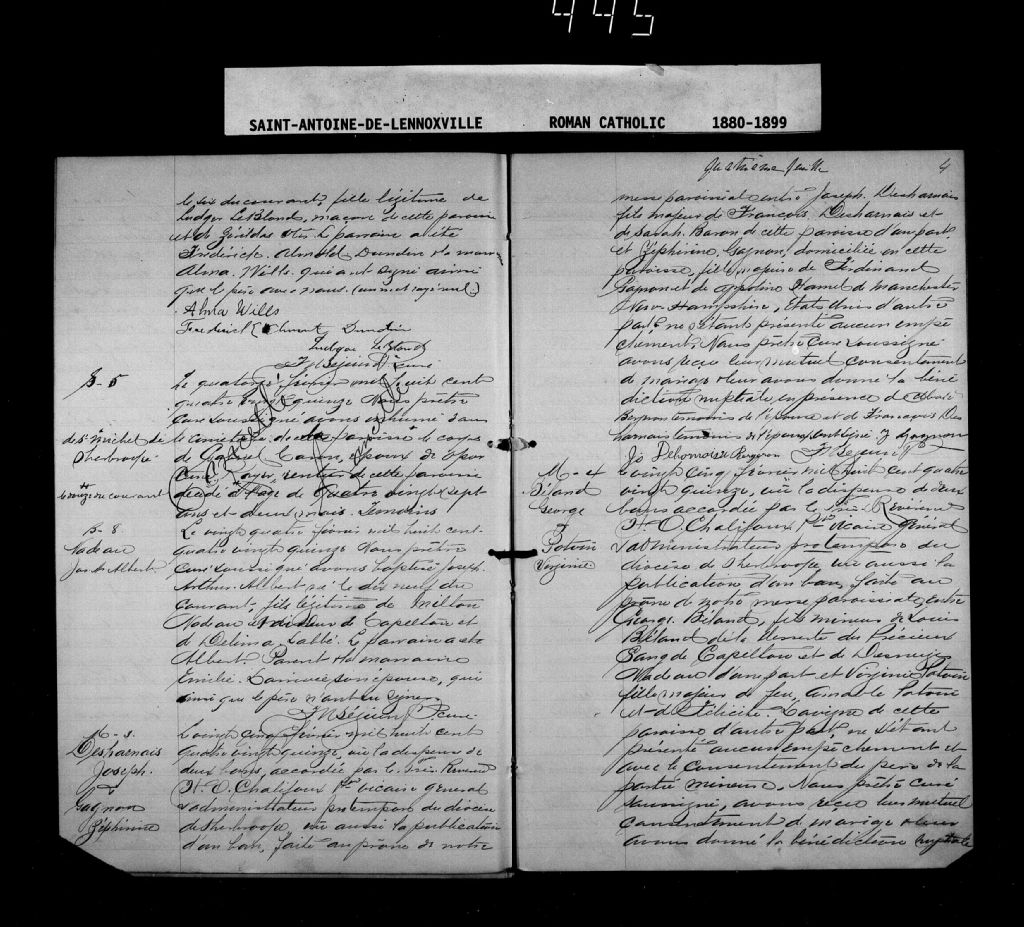 445
SAINT-ANTOINE-DE-LENNOXVILLE ROMAN CATHOLIC 1880-1899
le six du courant, fille légitime de
Ludger LeBlond, maçon de cette paroisse
et de Le parrain a été
Frederick Dundin la marr
Alma Wills qui ont signé ainsi
que le père avec nous.
Alma Wills
Frederick Dundin
Ludger LeBlond
Ptre Curé
S-5
de St Michel de
Sherbrooke
le onze du courant
Le quatorze février mil huit cent
quatre vingt quinze Nous prêtre
curé soussigné avons inhumé dans
le cimetière de cette paroisse le corps
de Gabriel Caron, époux de
rentier de cette paroisse
décédé à l'age de quatre vingt sept
ans et deux mois. Témoins
B-8
Nadeau
Jos Albert
Le vingt quatre février mil huit cent
quatre vingt quinze Nous prêtre
curé soussigné avons baptisé Joseph
Arthur Albert né le dix neuf du
courant, fils légitime de Milton
Nadeau de Capelton et
de Delima Labbé. Le parrain a été
Albert Parent la marraine
Emilie son épouse, qui
ainsi que le père n'ont su signer
Ptre curé
M-3.
Desharnais
Joseph.
&
Gagnon
Zéphirine
Le vingt cinq février mil huit cent
quatre vingt quinze, vu la dispense de
deux bans, accordée par le très Révérend
H. O. Chalifoux Ptre vicaire général
& administrateur pro tempore du diocèse
de Sherbrooke, vu aussi la publication
d'un ban, faite au prône de notre
Quatrième feuille 4
messe paroissiale entre Joseph Desharnais
fils majeur de François Desharnais et
de Sarah Baron de cette paroisse d'une part
et Zéphirine Gagnon, domiciliée en cette
paroisse, fille majeure de Ferdinand
Gagnon et de Hamel de Manchester
New-Hampshire, Etats Unis d'autre
part ne s'étant présenté aucun empê
chement, Nous prêtre curé soussigné
avons reçu leur mutuel consentement
de mariage & leur avons donné la béné
diction nuptiale en présence de
témoin de l'épouse et de François Des
harnais témoin de l'époux
M-4
Béland
George
&
Potvin
Virginie
vingt cinq février mil huit cent quatre
vingt quinze, vu la dispense de deux
bans accordée par le très Révérend
H. O. Chalifoux Ptre Vicaire Général
& administrateur pro tempore du
diocèse de Sherbrooke, vu aussi la
publication d'un ban, faite au
prône de notre messe paroissiale, entre
George Béland, fils mineur de Louis
Béland de la desserte du Précieux
Sang de Capelton et de
Nadeau d'une part et Virginie Potvin
fille majeure de feu Potvin
et de Félicité Lavigne de cette
paroisse d'autre part, ne s'étant
présenté aucun empêchement et
avec le consentement du père de la
partie mineure, Nous prêtre curé
soussigné, avons reçu leur mutuel
consentement de mariage & leur
avons donné la bénédiction nuptiale